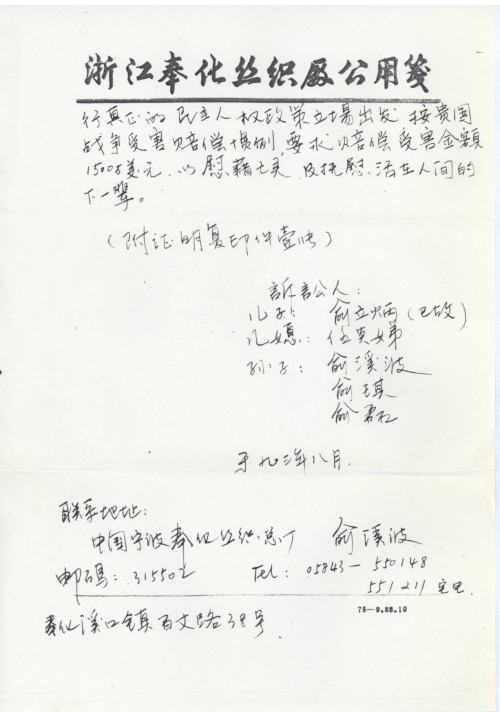 浙江奉化丝织厂公用笺
行真正的民主人权政策立場出发 按貴国
战争受害赔偿惯例,要求赔偿受害金額
1500万美元,以慰藉亡灵,及抚慰活在人间的
下一輩。
(附证明复印件壹张)
訴訟人:
儿子: 俞立炳(已故)
儿媳: 任英娣
孙子: 俞溪波
俞琪
俞君
于九三年八月.
联系地址:
中国宁波奉化丝织总厂 俞溪波
邮码: 315502 Tel: 05843-550148
551211 宅电
76—9.88.10
奉化溪口镇百丈路38号.